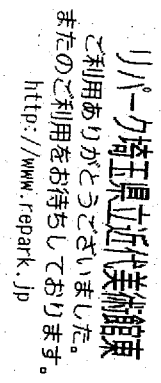 リパーク埼玉県立近代美術館東
ご利用ありがとうございました。
またのご利用をお待ちしております。
http://www.repark.jp